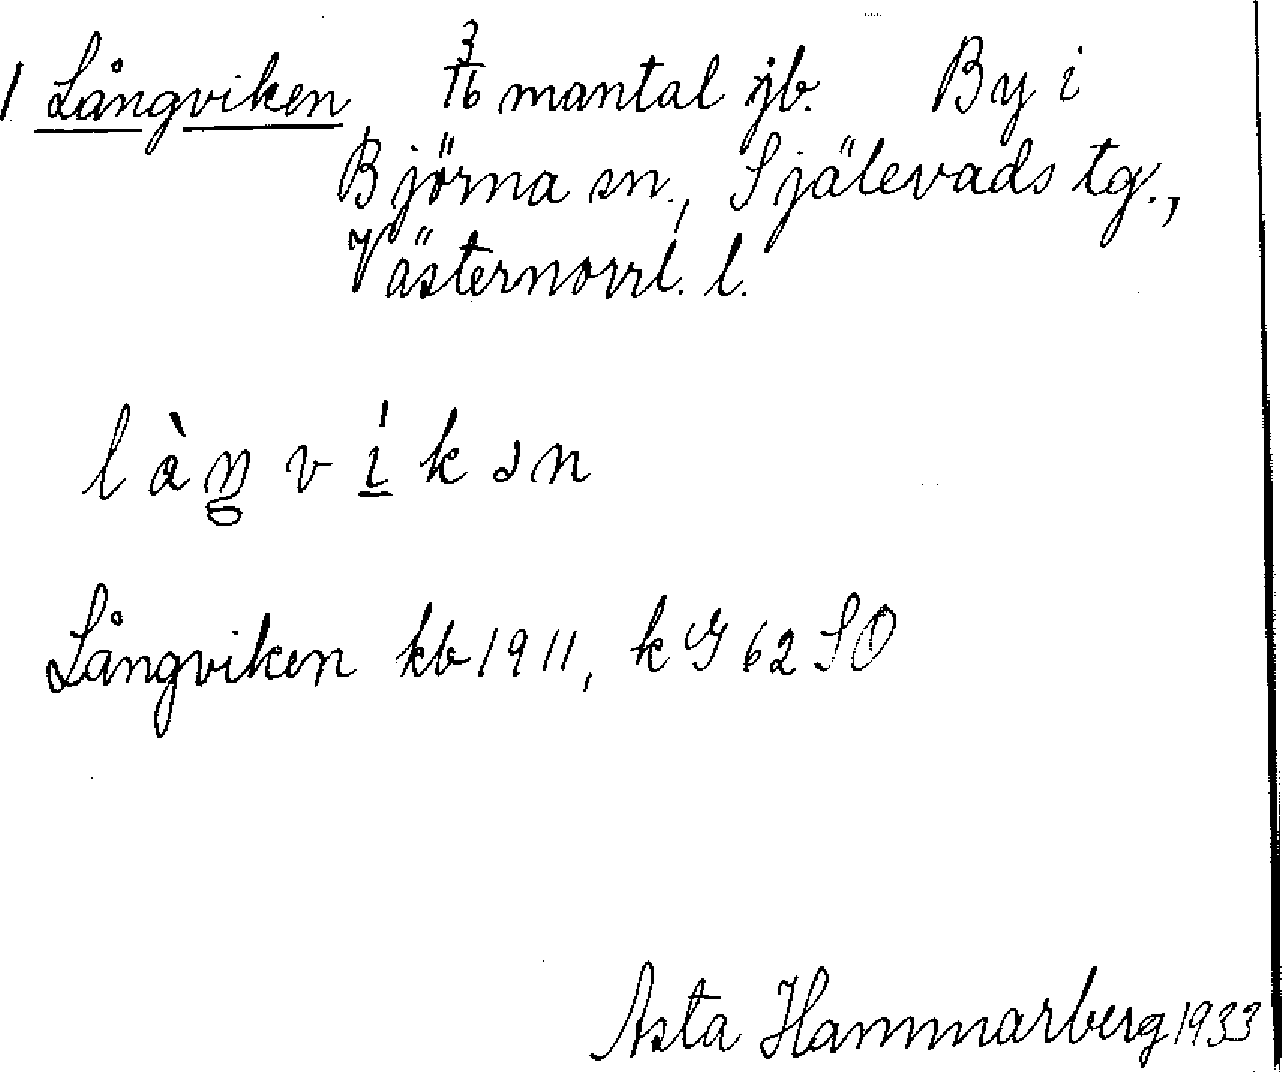 1 Långviken 3/16 mantal jb. By i
Björna sn., Själevads tg.,
Västernorrl. l.
làŋ v í k ə n
Långviken kb 1911, k G 62 SO
Asta Hammarberg 1933